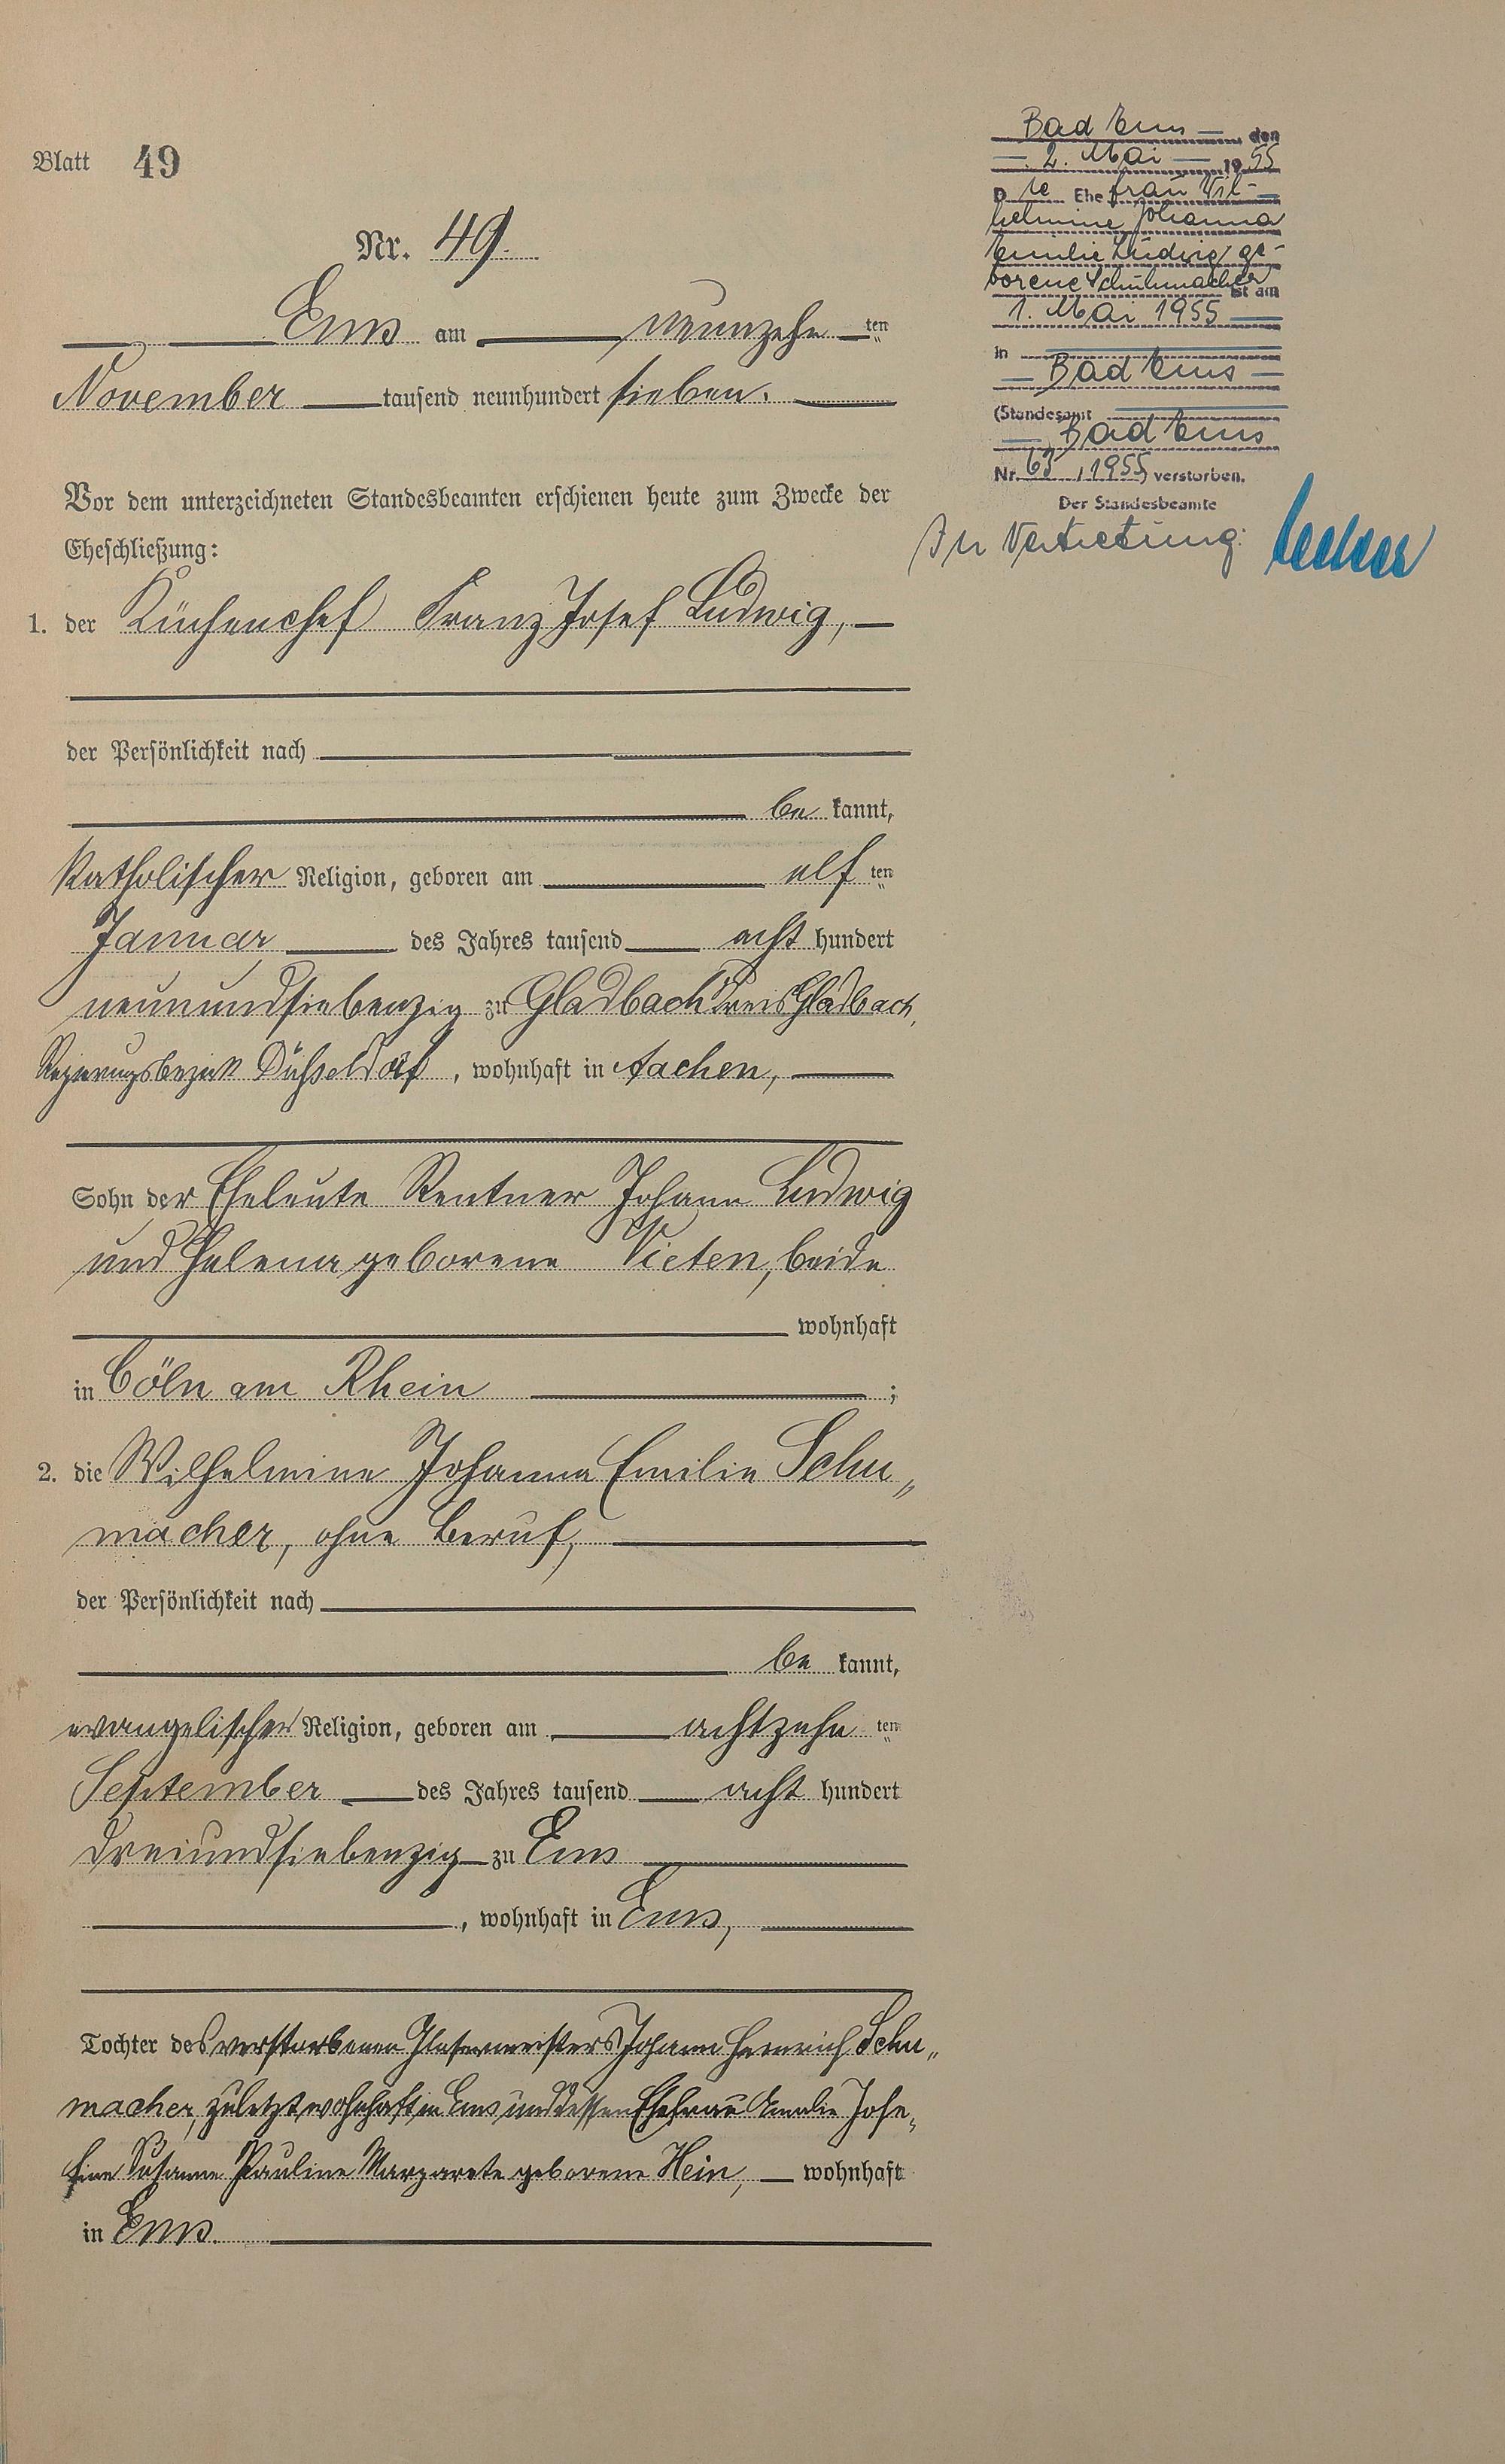 Blatt 49
Nr. 49.
Ems am neunzehnten
November tausend neunhundert sieben.
Vor dem unterzeichneten Standesbeamten erschienen heute zum Zwecke der
Eheschließung:
1. der Küchenchef Franz Josef Ludwig,
der Persönlichkeit nach
be kannt,
katholischer Religion, geboren am elf ten
Januar des Jahres tausend acht hundert
neunundsiebenzig zu Gladbach Kreis Gladbach,
Regierungsbezirk Düsseldorf, wohnhaft in Aachen,
Sohn der Eheleute Rentner Johann Ludwig
und Helena geborene Vieten, beide
wohnhaft
in Cöln am Rhein ;
2. die Wilhelmine Johanna Emilie Schu„
macher, ohne Beruf,
der Persönlichkeit nach
be kannt,
evangelischer Religion, geboren am achtzehn ten
September des Jahres tausend acht hundert
dreiundsiebenzig zu Ems
, wohnhaft in Ems,
Tochter des verstorbenen Glasermeisters Johann Heinrich Schu„
macher, zuletzt wohnhaft in Ems und dessen Ehefrau Amalie Jose„
fine Susanne Pauline Margarete geborene Hein, wohnhaft
in Ems.
Bad Ems den
2. Mai 1955
Die Ehefrau Wil-
helmine Johanna
Emilie Ludwig ge-
borene Schuhmacher ist am
1. Mai 1955
in
Bad Ems
(Standesamt
Bad Ems
Nr. 63 / 1955) verstorben.
Der Standesbeamte
In Vertretung: